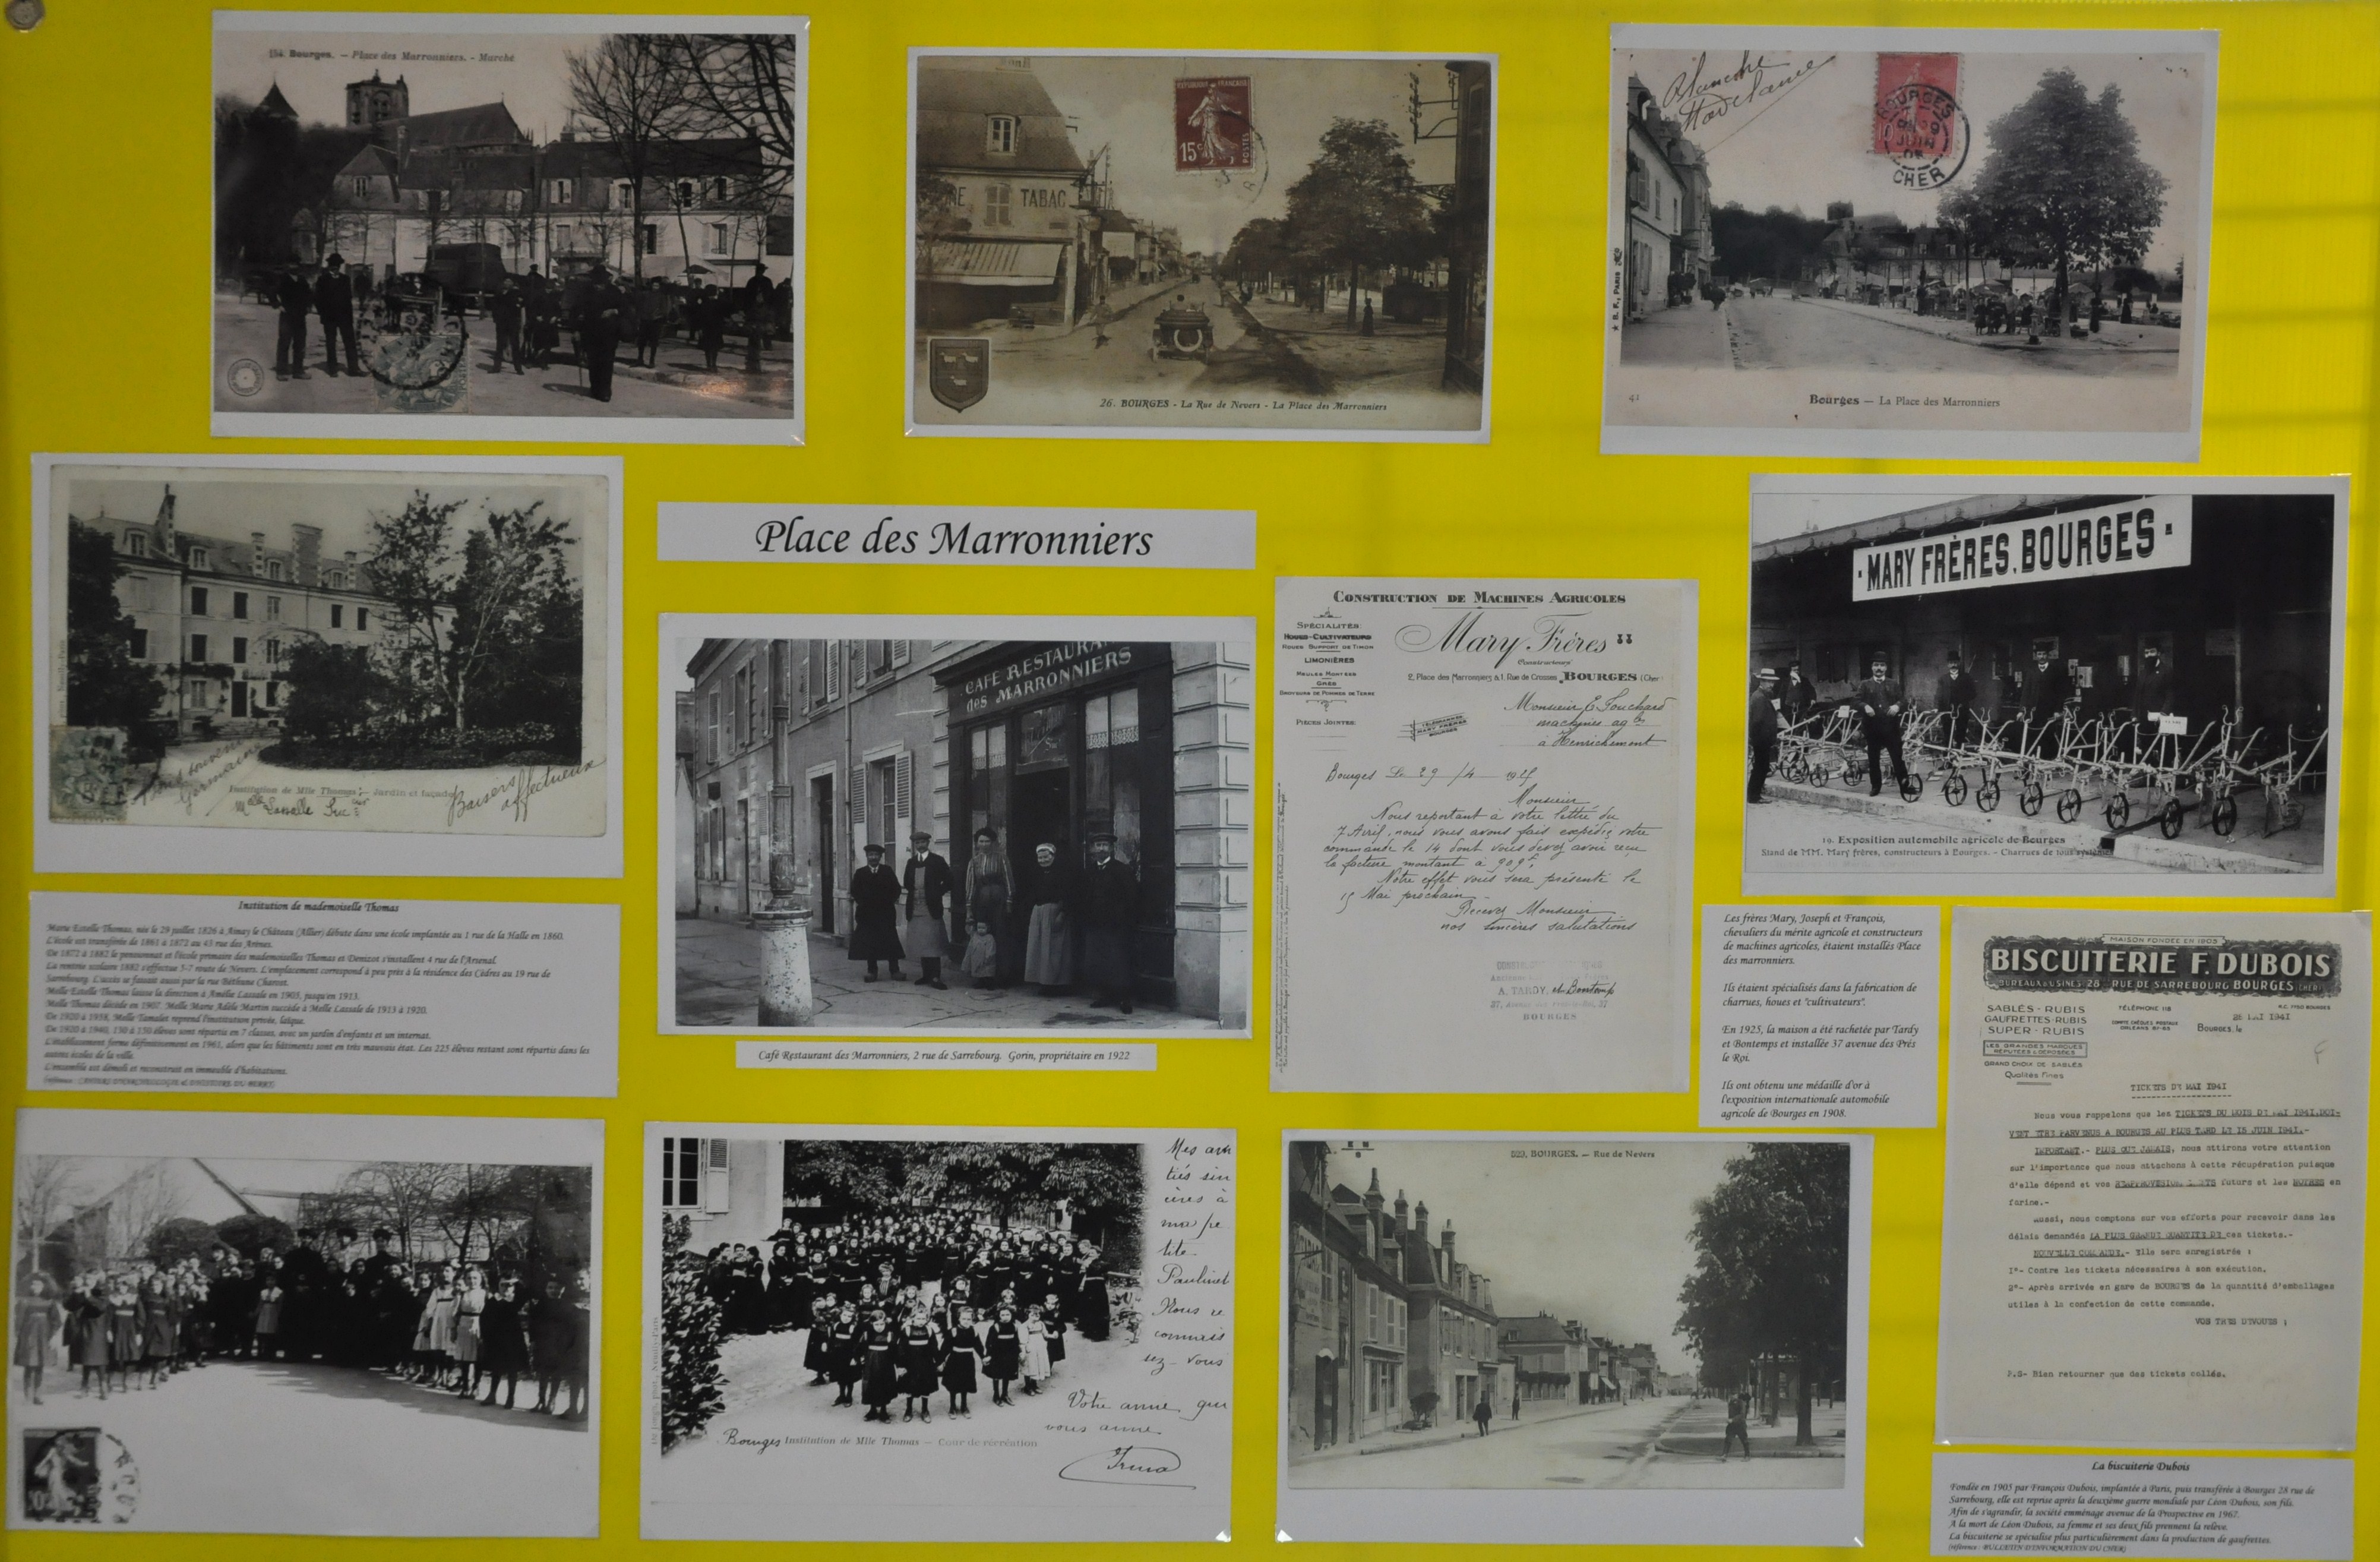 Bourges. — Place des Marronniers. - Marché
REPUBLIQUE FRANÇAISE
15c
POSTES
RE TABAC
26. BOURGES - La Rue de Nevers - La Place des Marronniers
Blanche
BOURGES
JUIN
CHER
10
★ B. F., PARIS
41
Bourges — La Place des Marronniers
Germaine
Institution de Mlle Thomas — Jardin et façade
Baisers
affectueux
Place des Marronniers
CAFÉ RESTAURANT
des MARRONNIERS
Café Restaurant des Marronniers, 2 rue de Sarrebourg. Gorin, propriétaire en 1922
CONSTRUCTION DE MACHINES AGRICOLES
SPÉCIALITÉS:
HOUES-CULTIVATEURS
ROUES SUPPORT DE TIMON
LIMONIÈRES
MEULES MONTÉES
GRÈS
BROYEURS DE POMMES DE TERRE
PIÈCES JOINTES:
Mary Frères
Constructeurs
2, Place des Marronniers & 1, Rue de Crosses BOURGES (Cher)
Monsieur E. Souchard
machines agles
à Henrichemont
Bourges Le 29 /4
Monsieur
Nous reportant à votre lettre du
7 Avril, nous vous avons fait expédier votre
commande le 14 dont vous devez avoir reçu
la facture montant à 909f.
Notre effet vous sera présenté le
15 Mai prochain
Recevez Monsieur
nos sincères salutations
A. TARDY, et Bontemps
BOURGES
· MARY FRÈRES. BOURGES ·
19. Exposition automobile agricole de Bourges
Stand de MM. Mary frères, constructeurs à Bourges. — Charrues de tous systèmes
Les frères Mary, Joseph et François,
chevaliers du mérite agricole et constructeurs
de machines agricoles, étaient installés Place
des marronniers.
Ils étaient spécialisés dans la fabrication de
charrues, houes et "cultivateurs".
En 1925, la maison a été rachetée par Tardy
et Bontemps et installée 37 avenue des Prés
le Roi.
Ils ont obtenu une médaille d'or à
l'exposition internationale automobile
agricole de Bourges en 1908.
Institution de mademoiselle Thomas
Marie Estelle Thomas, née le 29 juillet 1826 à Ainay le Château (Allier) débute dans une école implantée au 1 rue de la Halle en 1860.
L'école est transférée de 1861 à 1872 au 43 rue des Arènes.
De 1872 à 1882 le pensionnat et l'école primaire des mademoiselles Thomas et Denizot s'installent 4 rue de l'Arsenal.
La rentrée scolaire 1882 s'effectue 5-7 route de Nevers. L'emplacement correspond à peu près à la résidence des Cèdres au 19 rue de
Sarrebourg. L'accès se faisait aussi par la rue Béthune Charost.
Melle Estelle Thomas laisse la direction à Amélie Lassale en 1905, jusqu'en 1913.
Melle Thomas décède en 1907. Melle Marie Adèle Martin succède à Melle Lassale de 1913 à 1920.
De 1920 à 1938, Melle Tamalet reprend l'institution privée, laïque.
De 1920 à 1940, 130 à 150 élèves sont répartis en 7 classes, avec un jardin d'enfants et un internat.
L'établissement ferme définitivement en 1961, alors que les bâtiments sont en très mauvais état. Les 225 élèves restant sont répartis dans les
autres écoles de la ville.
L'ensemble est démoli et reconstruit en immeuble d'habitations.
(référence : CAHIERS D'ARCHEOLOGIE et D'HISTOIRE DU BERRY)
MAISON FONDÉE EN 1905
BISCUITERIE F. DUBOIS
BUREAUX & USINES 28 RUE DE SARREBOURG BOURGES (CHER)
SABLÉS - RUBIS
GAUFRETTES-RUBIS
SUPER - RUBIS
TÉLÉPHONE 118
COMPTE CHÈQUES POSTAUX
R.C. 1750 BOURGES
28 MAI 1941
BOURGES, le
LES GRANDES MARQUES
RÉPUTÉES & DÉPOSÉES
GRAND CHOIX DE SABLÉS
Qualités Fines
F
TICKETS DE MAI 1941
Nous vous rappelons que les TICKETS DU MOIS DE MAI 1941, DOI-
VENT ETRE PARVENUS A BOURGES AU PLUS TARD LE 15 JUIN 1941.-
IMPORTANT.- PLUS QUE JAMAIS, nous attirons votre attention
sur l'importance que nous attachons à cette récupération puisque
d'elle dépend et vos REAPPROVISIONNEMENTS futurs et les NOTRES en
farine.-
Aussi, nous comptons sur vos efforts pour recevoir dans les
délais demandés LA PLUS GRANDE QUANTITE DE ces tickets.-
NOUVELLE COMMANDE.- Elle sera enregistrée :
1°- Contre les tickets nécessaires à son exécution.
2°- Après arrivée en gare de BOURGES de la quantité d'emballages
utiles à la confection de cette commande.
VOS TRES DEVOUES ;
P.S- Bien retourner que des tickets collés.
La biscuiterie Dubois
Fondée en 1905 par François Dubois, implantée à Paris, puis transférée à Bourges 28 rue de
Sarrebourg, elle est reprise après la deuxième guerre mondiale par Léon Dubois, son fils.
Afin de s'agrandir, la société emménage avenue de la Prospective en 1967.
A la mort de Léon Dubois, sa femme et ses deux fils prennent la relève.
La biscuiterie se spécialise plus particulièrement dans la production de gaufrettes.
(référence : BULLETIN D'INFORMATION DU CHER)
Mes ami
tiés sin
cères à
ma pe
tite
Paulinet
Vous re
connais
sez-vous
Votre amie qui
vous aime
Irma
Bourges Institution de Mlle Thomas — Cour de récréation
529. BOURGES. — Rue de Nevers